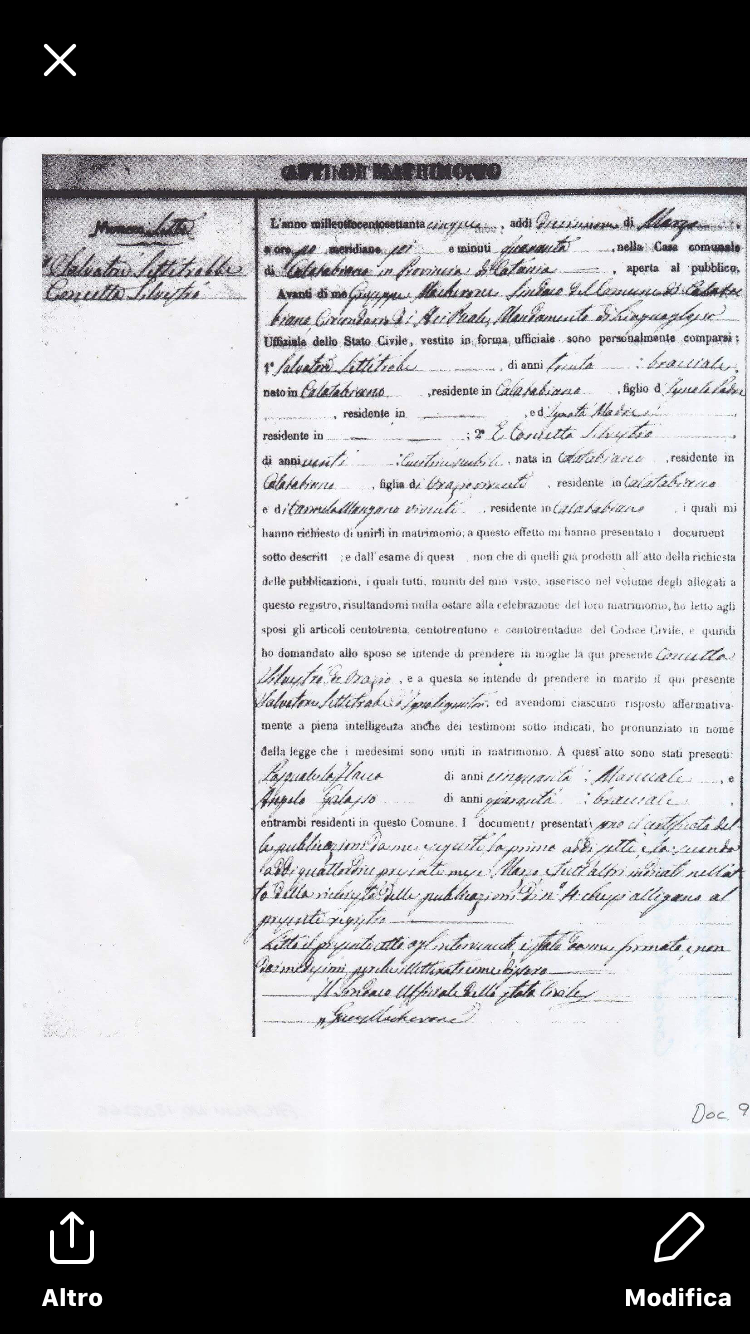 ATTI DI MATRIMONIO
Numero Sette
Salvatore Settetrobbe
Concetta Silvestro
L'anno milleottocentosettantacinque, addì di Marzo
a ore pm meridiane sei e minuti quaranta, nella Casa comunale
di Calatabiano in Provincia di Catania, aperta al pubblico.
Avanti di me Giuseppe Macherone Sindaco del Comune di Calata
biano Circondario di Aci Reale, Mandamento di Linguaglossa
Uffiziale dello Stato Civile, vestito in forma ufficiale sono personalmente comparsi:
1° Salvatore Settetrobbe, di anni trenta: bracciale,
nato in Calatabiano, residente in Calatabiano, figlio d'Ignoto Padre
, residente in , e d'Ignota Madre
residente in ; 2° E Concetta Silvestro
di anni venti, nata in Calatabiano, residente in
Calatabiano, figlia di Orazio vivente, residente in Calatabiano
e di Carmela Mangano vivente, residente in Calatabiano, i quali mi
hanno richiesto di unirli in matrimonio; a questo effetto mi hanno presentato i document
sotto descritt ; e dall'esame di quest , non che di quelli già prodotti all'atto della richiesta
delle pubblicazioni, i quali tutti, muniti del mio visto, inserisco nel volume degli allegati a
questo registro, risultandomi nulla ostare alla celebrazione del loro matrimonio, ho letto agli
sposi gli articoli centotrenta, centotrentuno e centotrentadue del Codice Civile, e quindi
ho domandato allo sposo se intende di prendere in moglie la qui presente Concetta
Silvestro di Orazio, e a questa se intende di prendere in marito il qui presente
Salvatore Settetrobbe d'Ignoti genitori, ed avendomi ciascuno risposto affermativa-
mente a piena intelligenza anche dei testimoni sotto indicati, ho pronunziato in nome
della legge che i medesimi sono uniti in matrimonio. A quest'atto sono stati presenti:
Pasquale di anni cinquanta: Manuale, e
Angelo Galasso di anni quaranta: bracciale,
entrambi residenti in questo Comune. I documenti presentati sono il certificato del
la pubblicazione da me eseguite la prima addì sette e la seconda
addì quattordici presente mese Marzo tutt'altri indicati nell'at
to della richiesta delle pubblicazioni di n° 4 che si alligano al
presente registro
Letto il presente atto agl'intervenuti, è stato da me firmato, e non
dai medesimi, perché illetterati come dissero
Il Sindaco Uffiziale dello stato Civile
Giusep Macherone
Doc. 9
Altro
Modifica